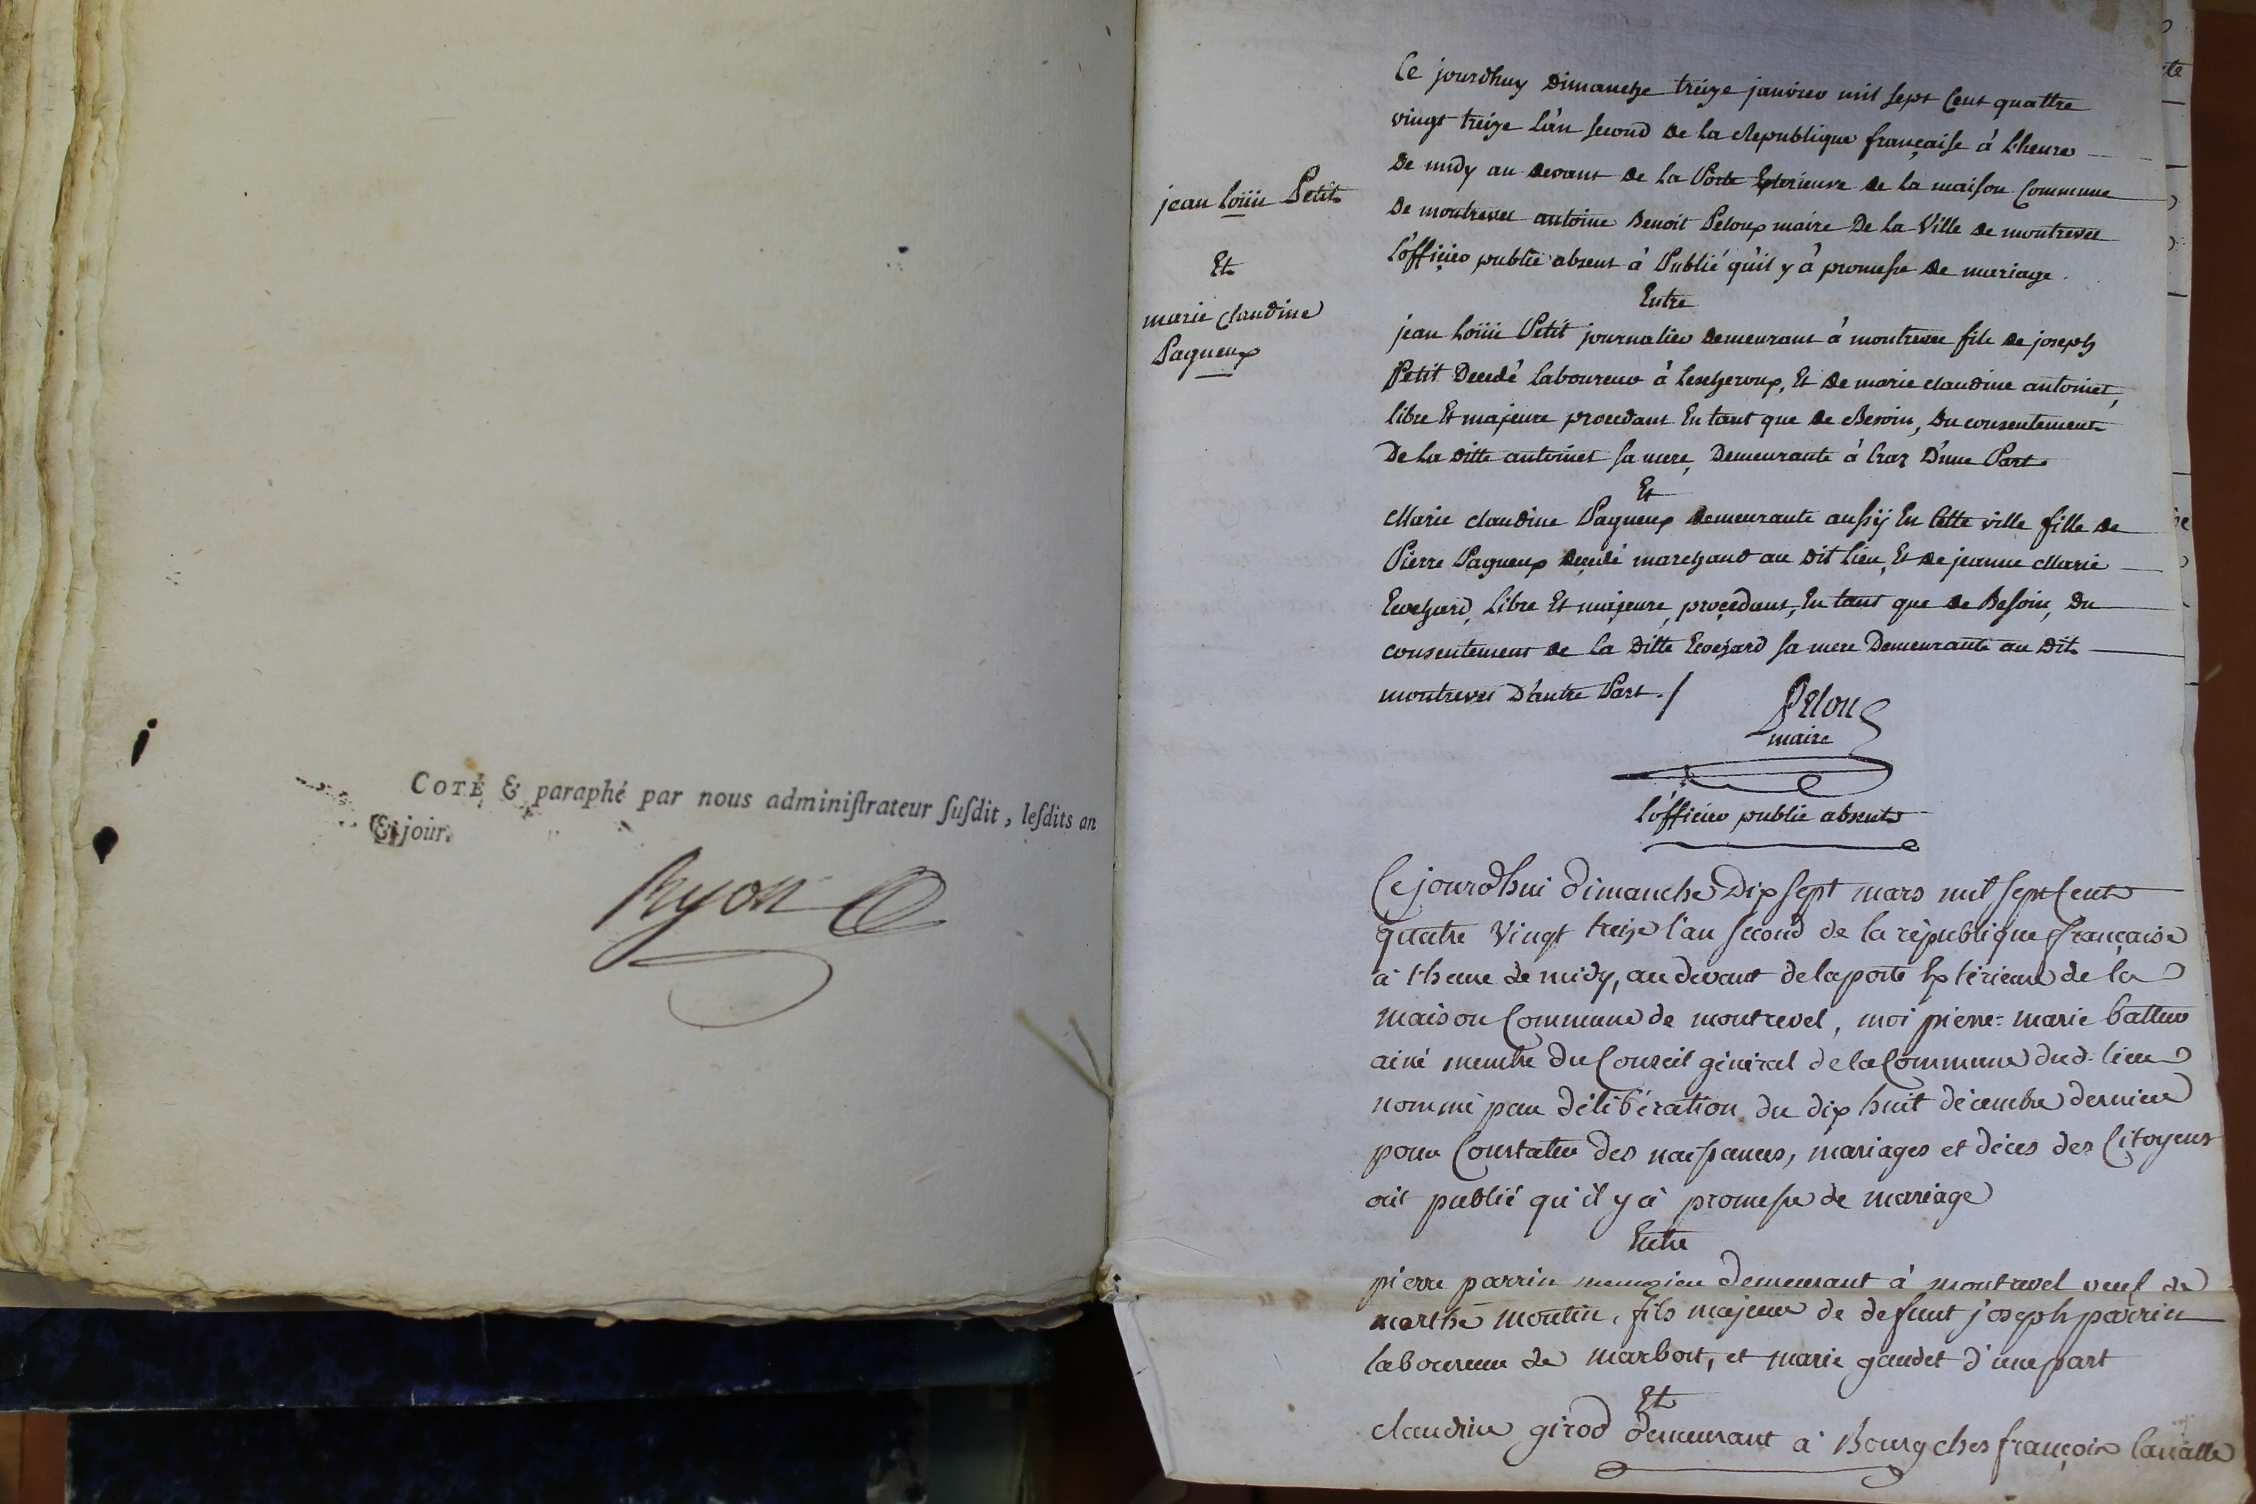 COTÉ & paraphé par nous adminiſtrateur ſuſdit, leſdits an
& jour.
Ryon
jean Loüis Petit
Et
marie claudine
Pagneux
Ce jourdhuy Dimanche treize janvier mil sept Cent quattre
vingt treize L'an second de la Republique française à L'heure
De midy au devant de la Porte Exterieure de la maison Commune
De montrevel antoine Benoit Peloux maire De la Ville de montrevel
L'officier public absent à Publié qu'il y à promesse de mariage
Entre
jean Loüis Petit journalier demeurant à montrevel fils de joseph
Petit Decedé laboureur à Lescheroux, Et de marie claudine antoinet,
libre Et majeure procedant En tant que de Besoin, Du consentement
De la ditte antoinet sa mere, Demeurante à Craz D'une Part.
Et
Marie claudine Pagneux demeurante aussÿ En Cette ville fille de
Pierre Pagneux decedé marchand au dit lieu, Et de jeanne Marie
Evechard, Libre Et majeure, procedant, En tant que de Besoin, Du
consentement de la ditte Evechard sa mere Demeurante au dit
montrevel D'autre Part./
Peloux
maire
L'officier public absent
Ce jourd'hui dimanche Dix sept mars mil sept Cent
quatre Vingt treize l'an second de la république française
à l'heure de midy, au devant de la porte Extérieure de la
maison Commune de montrevel, moi pierre=marie battur
ainé membre du Conseil général de la Commune dud. lieu
nommé par délibération du dix huit décembre dernier
pour Constater des naissances, mariages et décès des Citoyens
ait publié qu'il y à promesse de mariage
Entre
pierre parrin demeurant à montrevel veuf de
marthe moulin, fils majeur de defunt joseph parrin
laboureur de marbost, et marie gaudet d'une part
Et
claudine girod demeurant à Bourg ches françois lavalle